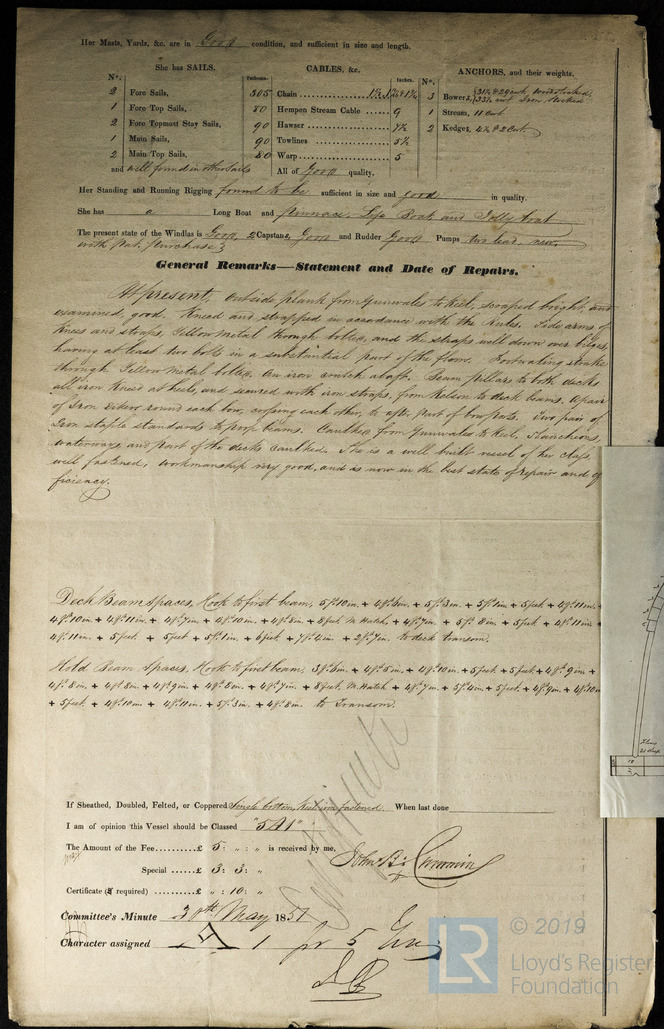 Her Masts, Yards, &c. are in Good condition, and sufficient in size and length.
She has SAILS. CABLES, &c. ANCHORS, and their weights.
Nº. Fathoms. Inches. Nº.
2 Fore Sails, 305 Chain
1 Fore Top Sails, 80 Hempen Stream Cable 9
2 Fore Topmast Stay Sails, 90 Hawser 7½
1 Main Sails, 90 Towlines 5½
2 Main Top Sails, 80 Warp 5
3 Bowers,
1 Stream, 11 Cwt
2 Kedges,
and well found in other Sails All of Good quality,
Her Standing and Running Rigging found to be sufficient in size and good in quality.
She has a Long Boat and Pinnace, Life Boat and Jolly boat
The present state of the Windlas is Good, 2 Capstans, Good and Rudder Good Pumps two lead, new,
with Pat. purchase
General Remarks—Statement and Date of Repairs.
At present, Outside plank from Gunwales to Keel, scraped bright, and
examined, good. Kneed and strapped in accordance with the Rules. Side arms of
Knees and straps, Yellow metal through bolted, and the straps well down over bilges,
having at least two bolts in a substantial part of the floor. Footwaling strake
through Yellow Metal bolted. An iron crutch abaft. Beam pillars to both decks
all iron Kneed at heels, and secured with iron straps, from Kelson to deck beams. A pair
of Iron Riders round each bow, crossing each other, to after part of bow ports. Two pair of
Iron staple standards to prop beams. Caulked from Gunwales to Keel, Stanchions,
waterways and part of the decks caulked. She is a well built vessel of her class,
well fastened, workmanship very good, and is now in the best state of repair and ef
ficiency.
Deck Beam Spaces, Hook to first beam, 5ft.10in. + 4ft.6in. + 5ft.3in. + 5ft.1in + 5feet + 4ft.11in. +
4ft.10in + 4ft.11in. + 4ft.7in + 4ft.10in. + 4ft.8in + 8feet M. Hatch + 4ft.7in + 5ft.8in + 5feet + 4ft.11in +
4ft.11in + 5feet + 5feet + 5ft.1in + 6feet + 7ft.4in + 2ft.7in. to deck transom.
Hold Beam Spaces, Hook to first beam, 3ft.6in. + 4ft.5in. + 4ft.10in + 5feet + 5feet + 4ft.9in +
4ft.8in. + 4ft.8in + 4ft.9in + 4ft.8in. + 4ft.7in + 8feet M. Hatch + 4ft.7in. + 5ft.4in + 5feet. + 4ft.9in + 4ft.10in
+ 5feet. + 4ft.10in + 4ft.11in. + 5ft.3in + 4ft.8in to Transom.
If Sheathed, Doubled, Felted, or Coppered Single bottom, When last done
I am of opinion this Vessel should be Classed "5A1"
The Amount of the Fee £ 5 : „ : „ is received by me,
Special £ 3: 3: „
Certificate (if required) £ „ : 10: „
Committee's Minute 30th May 1857
Character assigned A 1 for 5
© 2019
LR Lloyd's Register
Foundation